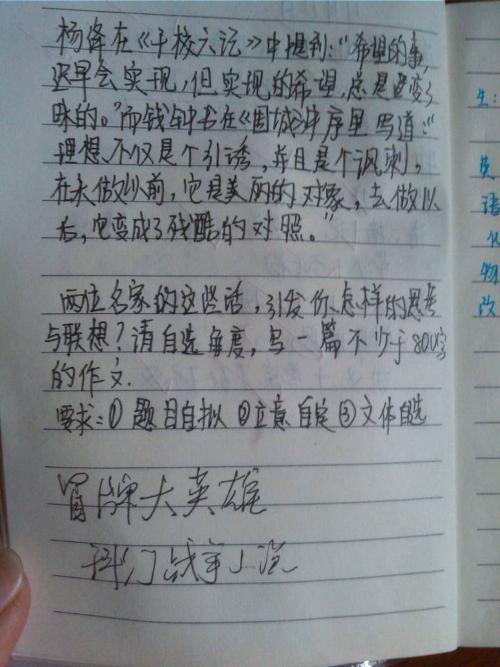 杨绛在《干校六记》中提到："希望的事,
迟早会实现,但实现的希望,总是变了
味的。"而钱钟书在《围城》中序里写道:"
理想,不仅是个引诱,并且是个讽刺。
在未做以前,它是美丽的对象,去做以
后,它变成了残酷的对照。"
两位名家的这些话,引发你怎样的思考
与联想?请自选角度,写一篇不少于800字
的作文.
要求:①题目自拟②立意自定③文体自选
冒牌大英雄
科幻战争小说
生:
语
物
改